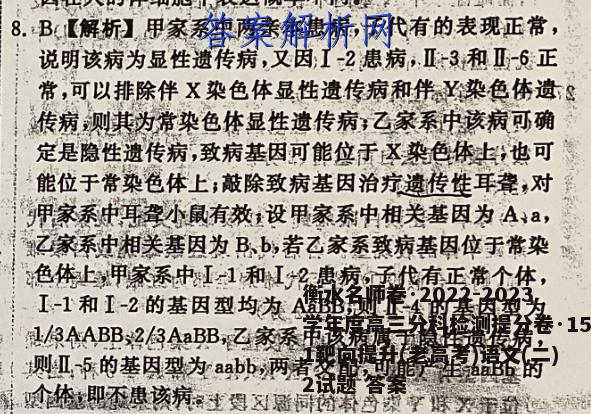 8. B【解析】甲家系中两亲本患病,子代有的表现正常,
答案解析网
说明该病为显性遗传病,又因Ⅰ-2 患病,Ⅱ-3 和Ⅱ-6 正
常,可以排除伴 X 染色体显性遗传病和伴 Y 染色体遗
传病,则其为常染色体显性遗传病;乙家系中该病可确
定是隐性遗传病,致病基因可能位于 X 染色体上,也可
能位于常染色体上;敲除致病基因治疗遗传性耳聋,对
甲家系中耳聋小鼠有效;设甲家系中相关基因为 A、a,
乙家系中相关基因为 B、b,若乙家系致病基因位于常染
色体上,甲家系中Ⅰ-1 和Ⅰ-2 患病,子代有正常个体,
Ⅰ-1 和Ⅰ-2 的基因型均为 AaBB,则Ⅱ-4 的基因型为
1/3AABB、2/3AaBB,乙家系中该病属于隐性遗传病,
则Ⅱ-5 的基因型为 aabb,两者交配,可能产生 aaBb 的
个体,即不患该病。
衡水名师卷·2022-2023
学年度高三分科检测提分卷·15
1靶向提升(老高考)语文(二)
2试题 答案